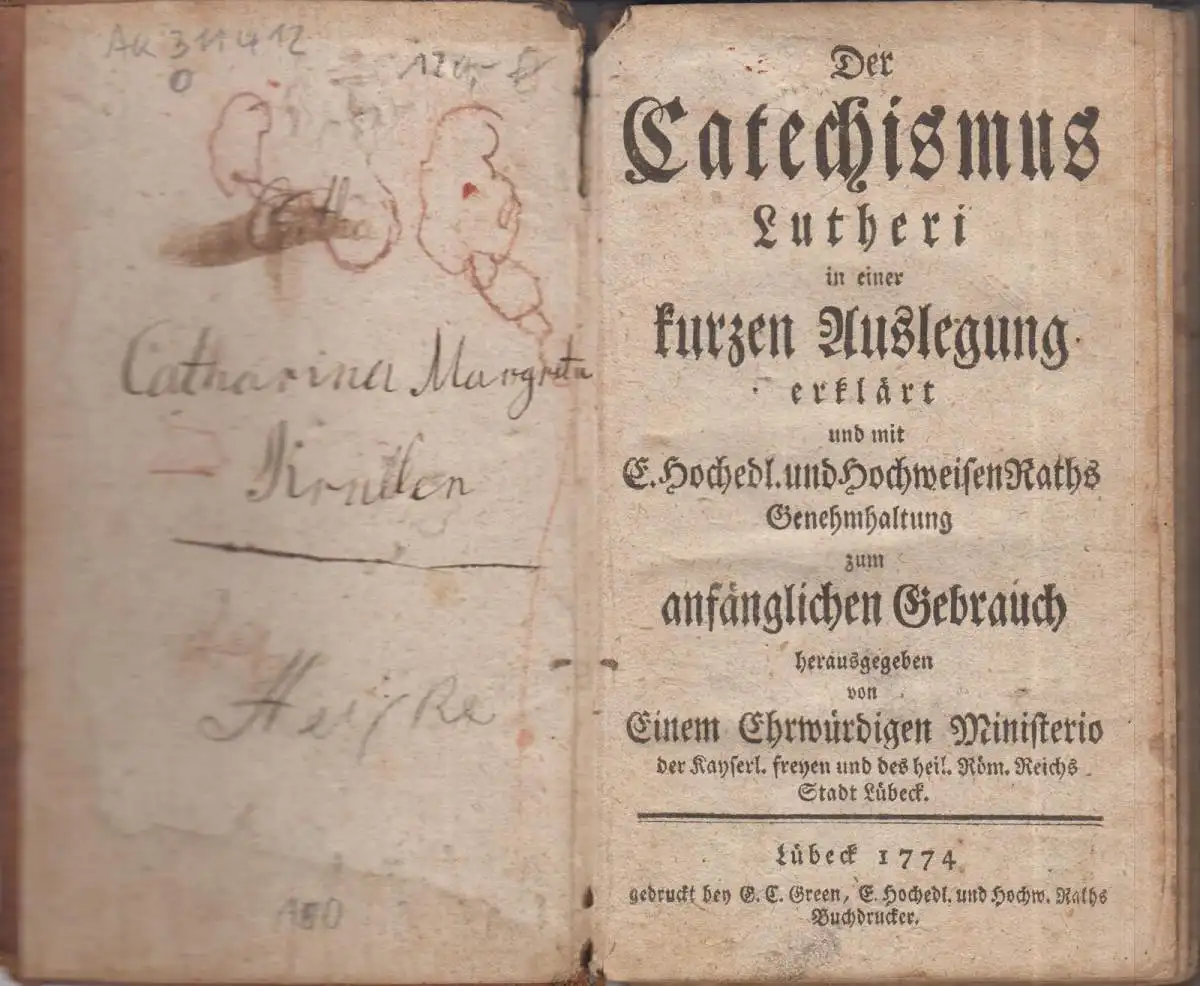 AK 311412
0
120,-
Catharina Margreta
Heiske
Der
Catechismus
Lutheri
in einer
kurzen Auslegung
erklärt
und mit
E. Hochedl. und Hochweisen Raths
Genehmhaltung
zum
anfänglichen Gebrauch
herausgegeben
von
Einem Ehrwürdigen Ministerio
der Kayserl. freyen und des heil. Röm. Reichs
Stadt Lübeck.
Lübeck 1774
gedruckt bey G. C. Green, E. Hochedl. und Hochw. Raths
Buchdrucker.